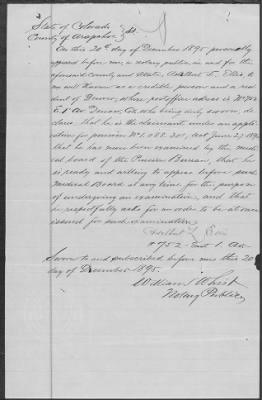 State of Colorado
County of Arapahoe } ss.
On this 20th day of December 1895, personally
appeared before me, a notary public, in and for the
aforesaid county and state, Adelbert L. Ellis, to
me well known as a credible person and a res-
ident of Denver, whose post office address is No 752
E. 1st Av Denver, Col, who being duly sworn, de-
clares that he is the claimant under an appli-
cation for pension No 1.088.201, act June 27, 1890
that he has never been examined by the med-
ical board of the Pension Bureau, that he
is ready and willing to appear before said
Medical Board at any time for the purpose
of undergoing an examination, and that
he respectfully asks for an order to be at once
issued for such examination.
Adelbert L.
#752 - East 1. Av.
Sworn to and subscribed before me this 20
day of December 1895.
William S.
Notary Public